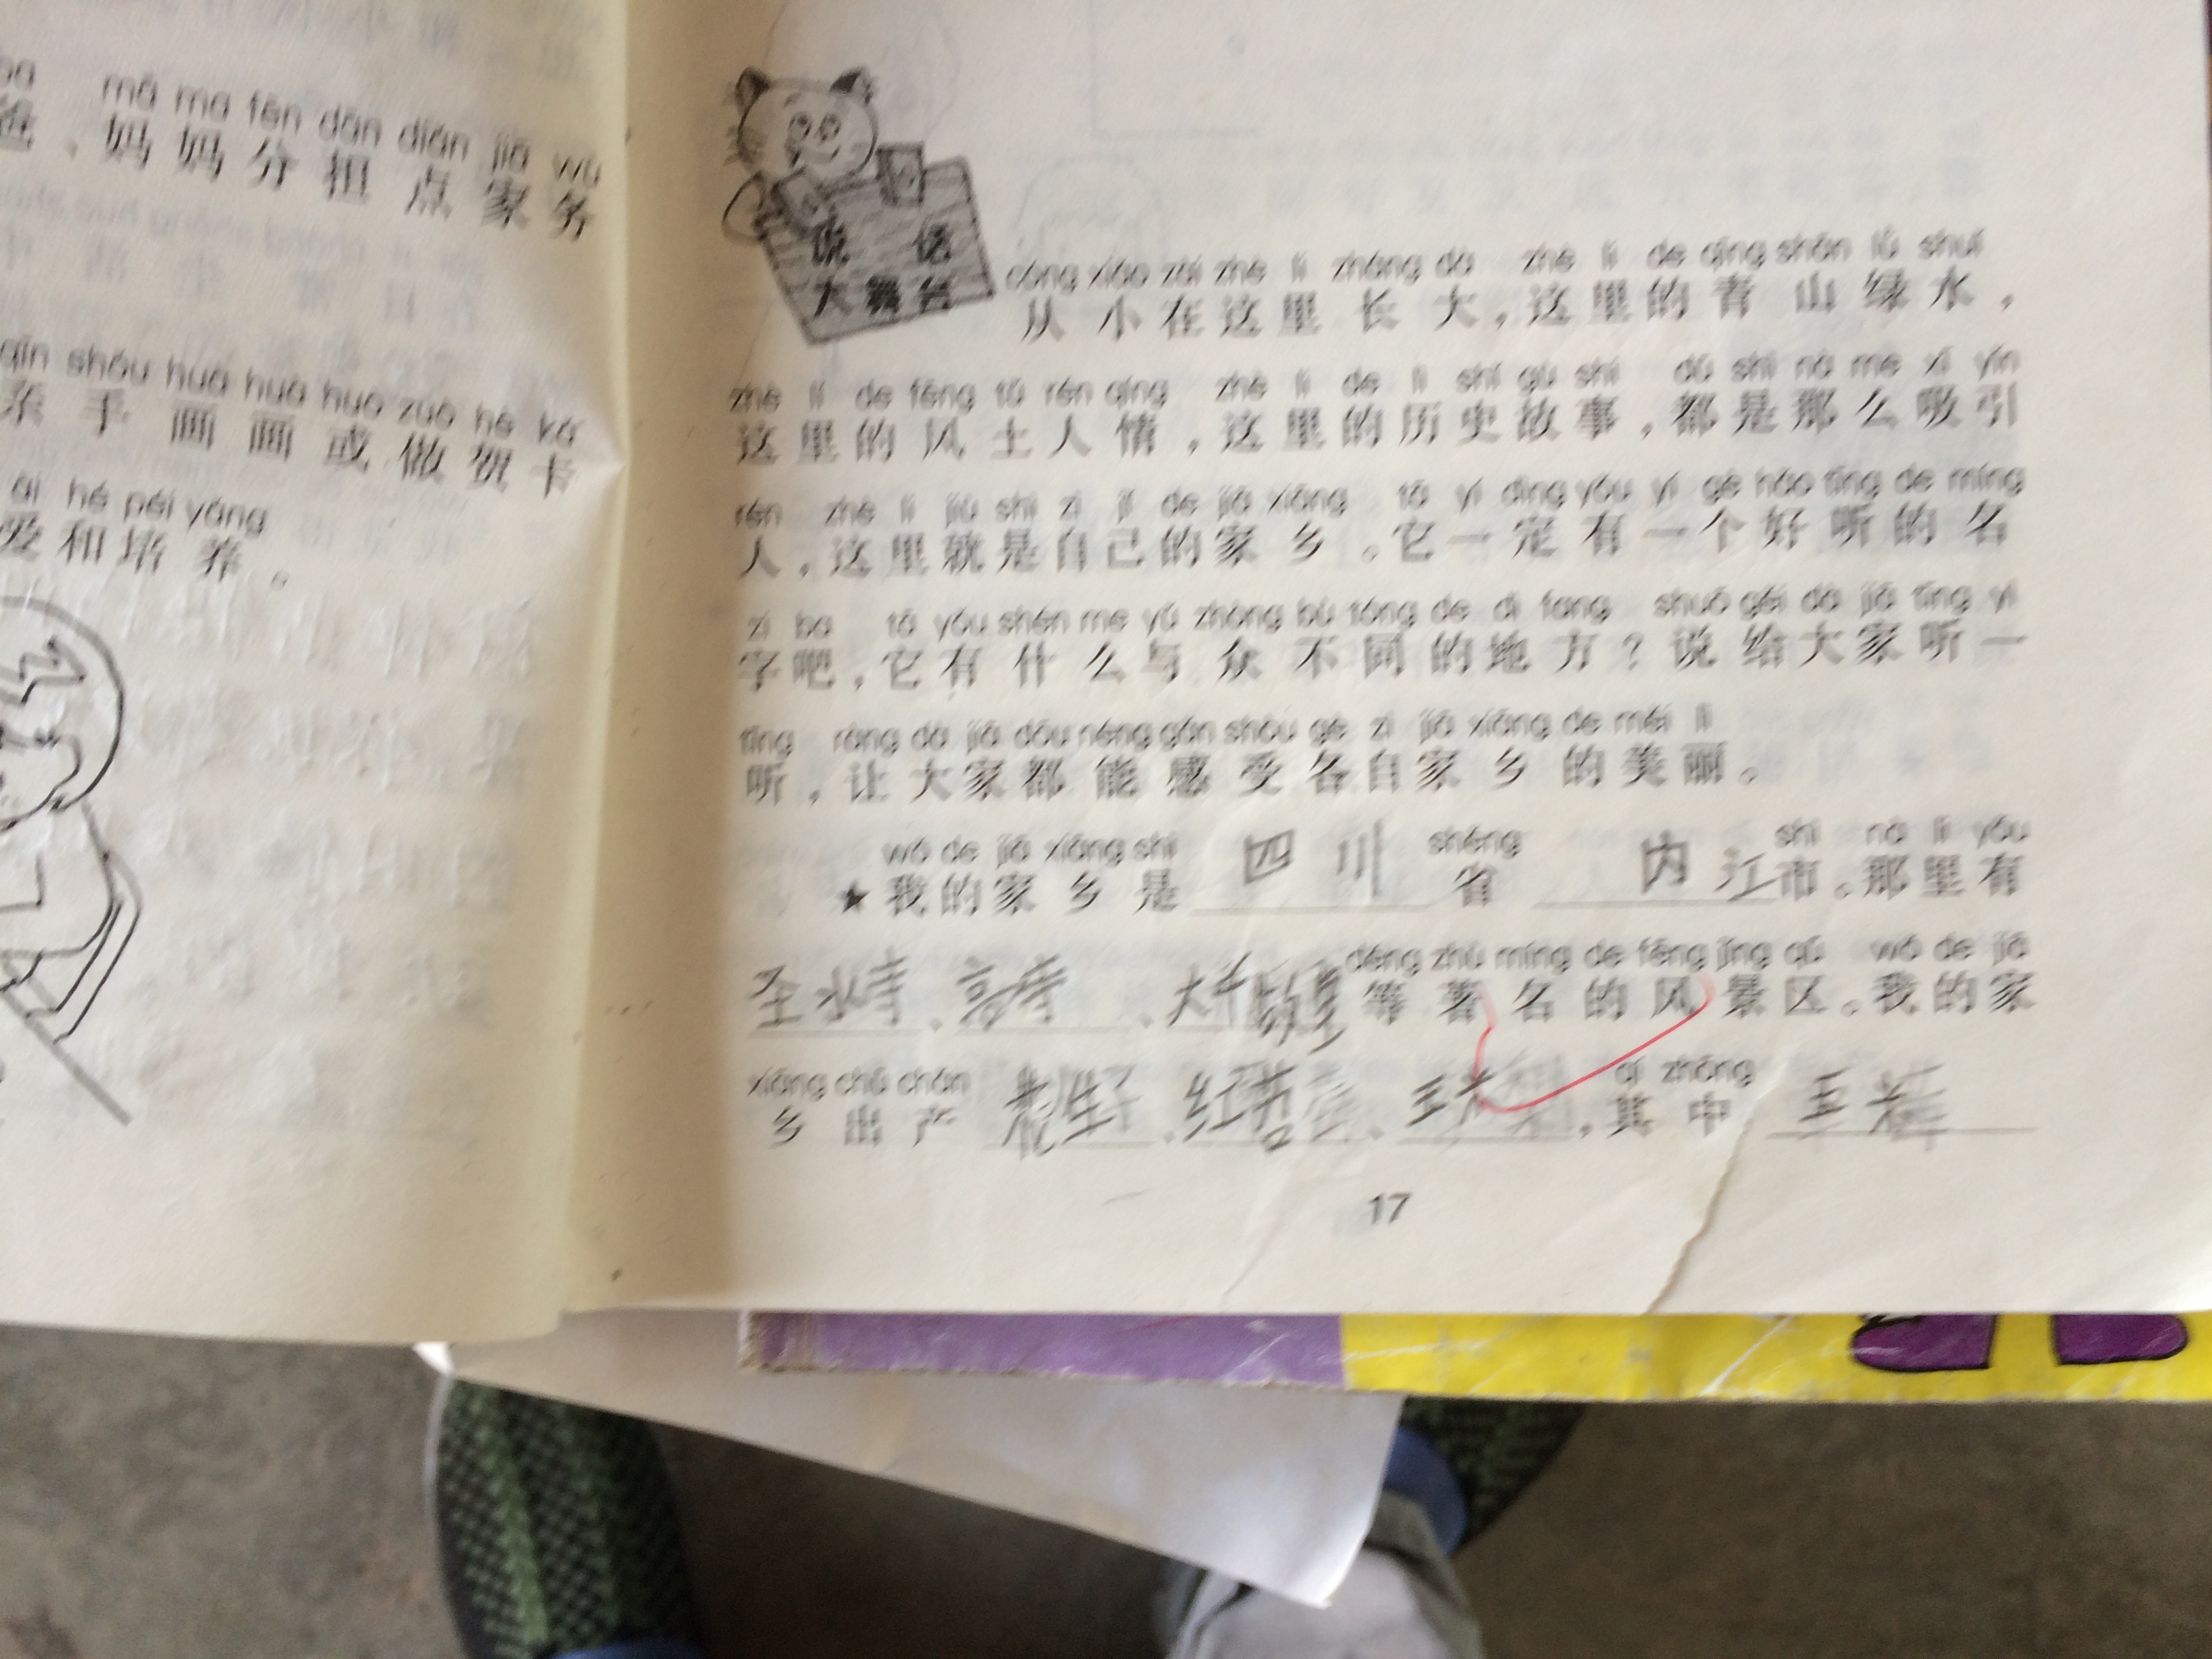 mā ma fēn dān diǎn jiā wù
爸、妈妈分担点家务
qīn shǒu huà huà huò zuò hè kǎ
亲手画画或做贺卡
ài hé péi yǎng
爱和培养。
说话
大舞台
cóng xiǎo zài zhè lǐ zhǎng dà zhè lǐ de qīng shān lǜ shuǐ
从小在这里长大，这里的青山绿水，
zhè lǐ de fēng tǔ rén qíng zhè lǐ de lì shǐ gù shi dōu shì nà me xī yǐn
这里的风土人情，这里的历史故事，都是那么吸引
rén zhè lǐ jiù shì zì jǐ de jiā xiāng tā yí dìng yǒu yí gè hǎo tīng de míng
人，这里就是自己的家乡。它一定有一个好听的名
zì ba tā yǒu shén me yǔ zhòng bù tóng de dì fang shuō gěi dà jiā tīng yi
字吧，它有什么与众不同的地方？说给大家听一
tīng ràng dà jiā dōu néng gǎn shòu gè zì jiā xiāng de měi lì
听，让大家都能感受各自家乡的美丽。
wǒ de jiā xiāng shì shěng shì nà lǐ yǒu
★我的家乡是 四川 省 内江 市。那里有
děng zhù míng de fēng jǐng qū wǒ de jiā
圣水寺、高寺、大 等著名的风景区。我的家
xiāng chū chǎn qí zhōng
乡出产 、红苕、，其中
17